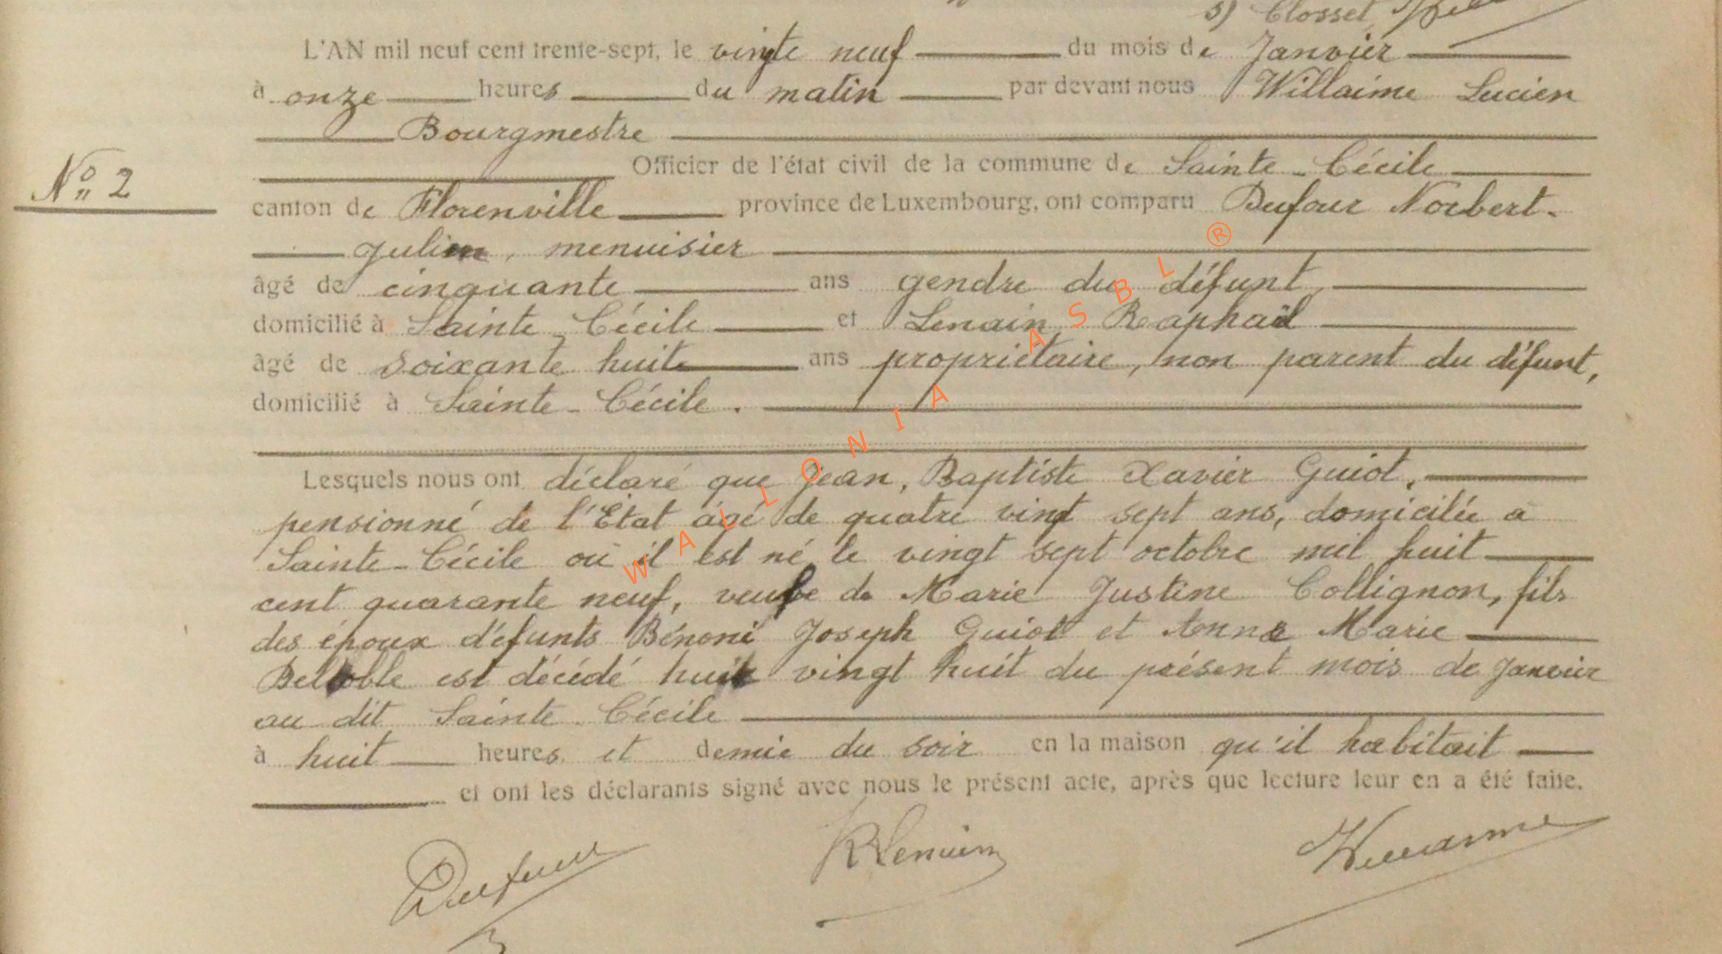 s) Closset
L'AN mil neuf cent trente-sept, le vingte neuf du mois de Janvier
à onze heures du matin par devant nous Willaime Lucien
Bourgmestre
Officier de l'état civil de la commune de Sainte-Cécile
No 2
canton de Florenville province de Luxembourg, ont comparu Dufour Norbert-
Julien, menuisier
âgé de cinquante ans gendre du défunt,
domicilié à Sainte-Cécile et Lenain, Raphaël
âgé de soixante huit ans propriétaire, non parent du défunt,
domicilié à Sainte-Cécile.
Lesquels nous ont déclaré que Jean, Baptiste Xavier Guiot,
pensionné de l'Etat âgé de quatre vingt sept ans, domicilée à
Sainte-Cécile où il est né le vingt sept octobre mil huit
cent quarante neuf, veuf de Marie Justine Collignon, fils
des époux défunts Bénoni Joseph Guiot et Anne Marie
est décédé vingt huit du présent mois de Janvier
au dit Sainte-Cécile
à huit heures et demie du soir en la maison qu'il habitait
et ont les déclarants signé avec nous le présent acte, après que lecture leur en a été faite.
Dufour RLenain Willaime
WALLONIA ASBL ®